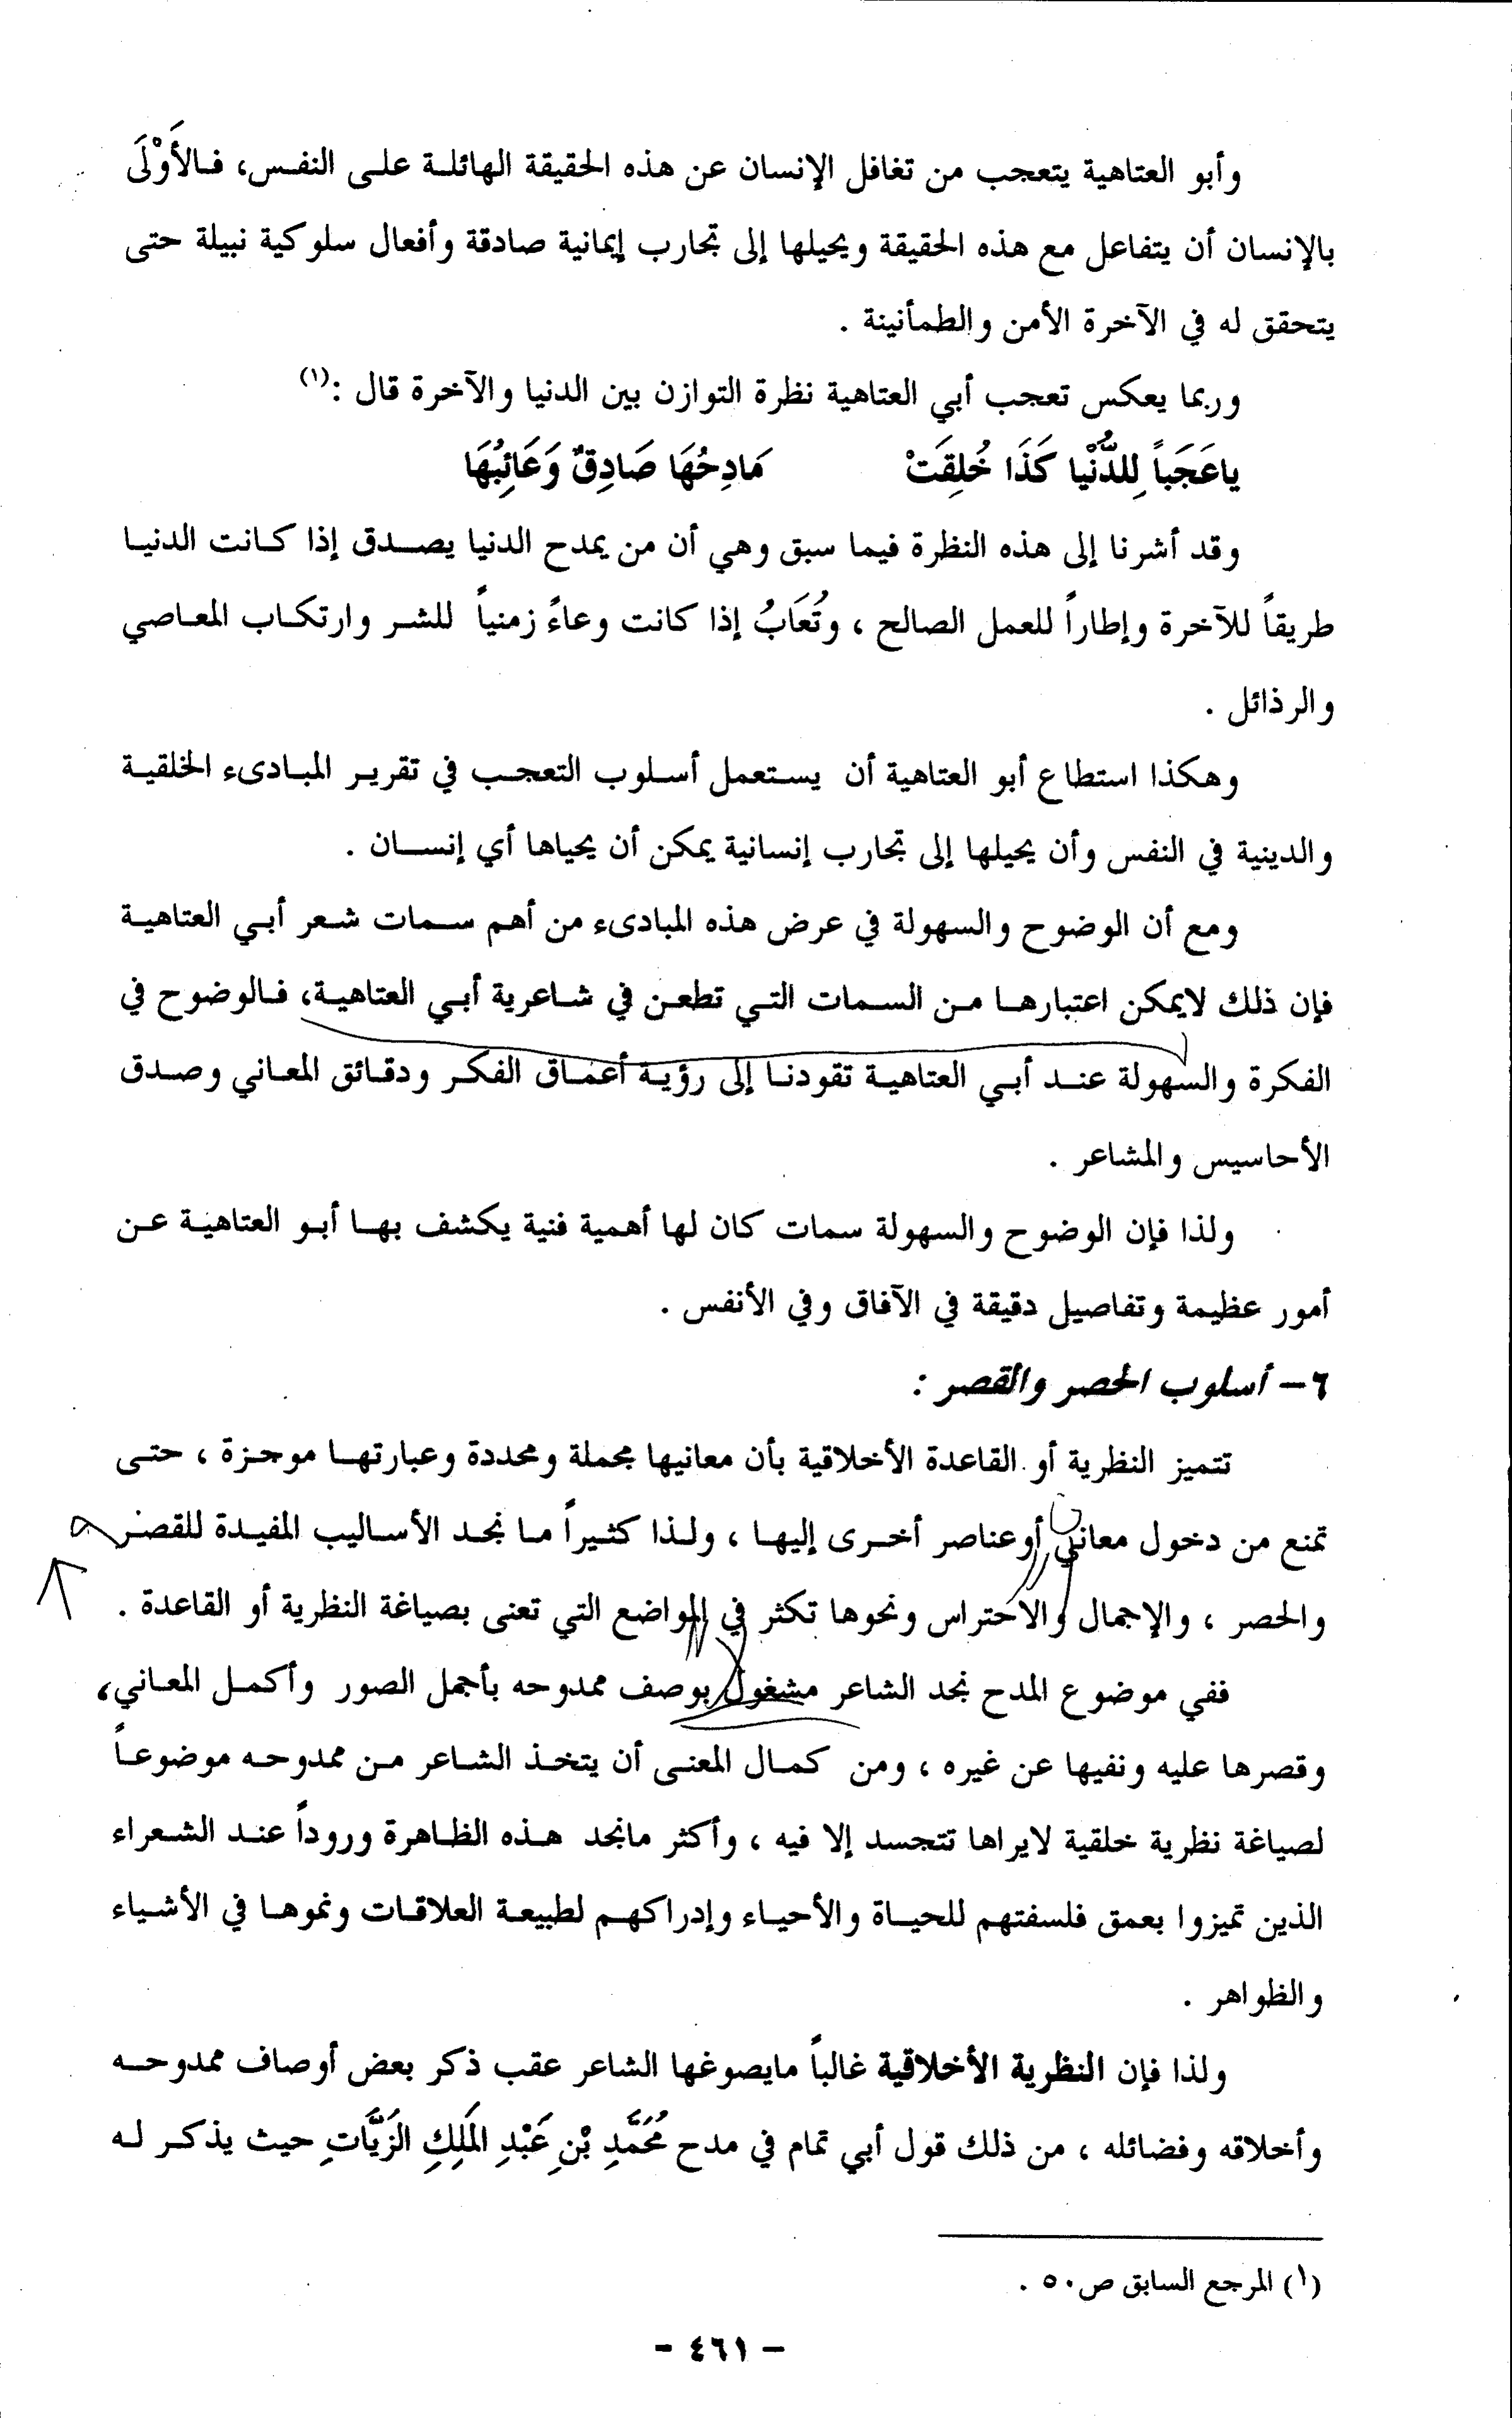 وأبو العتاهية يتعجب من تغافل الإنسان عن هذه الحقيقة الهائلة على النفس، فالأَوْلَى
بالإنسان أن يتفاعل مع هذه الحقيقة ويحيلها إلى تجارب إيمانية صادقة وأفعال سلوكية نبيلة حتى
يتحقق له في الآخرة الأمن والطمأنينة .
وربما يعكس تعجب أبي العتاهية نظرة التوازن بين الدنيا والآخرة قال :(١)
ياعَجَباً لِلدُّنْيا كَذَا خُلِقَتْ مَادِحُهَا صَادِقٌ وَعَائِبُهَا
وقد أشرنا إلى هذه النظرة فيما سبق وهي أن من يمدح الدنيا يصدق إذا كانت الدنيا
طريقاً للآخرة وإطاراً للعمل الصالح ، وتُعَابُ إذا كانت وعاءً زمنياً للشر وارتكاب المعاصي
والرذائل .
وهكذا استطاع أبو العتاهية أن يستعمل أسلوب التعجب في تقرير المبادىء الخلقية
والدينية في النفس وأن يحيلها إلى تجارب إنسانية يمكن أن يحياها أي إنسان .
ومع أن الوضوح والسهولة في عرض هذه المبادىء من أهم سمات شعر أبي العتاهية
فإن ذلك لايمكن اعتبارها من السمات التي تطعن في شاعرية أبي العتاهية، فالوضوح في
الفكرة والسهولة عند أبي العتاهية تقودنا إلى رؤية أعماق الفكر ودقائق المعاني وصدق
الأحاسيس والمشاعر .
ولذا فإن الوضوح والسهولة سمات كان لها أهمية فنية يكشف بها أبو العتاهية عن
أمور عظيمة وتفاصيل دقيقة في الآفاق وفي الأنفس .
٦- أسلوب الحصر والقصر :
تتميز النظرية أو القاعدة الأخلاقية بأن معانيها مجملة ومحددة وعبارتها موجزة ، حتى
تمنع من دخول معاني أوعناصر أخرى إليها ، ولذا كثيراً ما نجد الأساليب المفيدة للقصر
والحصر ، والإجمال والاحتراس ونحوها تكثر في المواضع التي تعنى بصياغة النظرية أو القاعدة .
ففي موضوع المدح نجد الشاعر مشغول بوصف ممدوحه بأجمل الصور وأكمل المعاني،
وقصرها عليه ونفيها عن غيره ، ومن كمال المعنى أن يتخذ الشاعر من ممدوحه موضوعاً
لصياغة نظرية خلقية لايراها تتجسد إلا فيه ، وأكثر مانجد هذه الظاهرة وروداً عند الشعراء
الذين تميزوا بعمق فلسفتهم للحياة والأحياء وإدراكهم لطبيعة العلاقات ونموها في الأشياء
والظواهر .
ولذا فإن النظرية الأخلاقية غالباً مايصوغها الشاعر عقب ذكر بعض أوصاف ممدوحه
وأخلاقه وفضائله ، من ذلك قول أبي تمام في مدح مُحَمَّدِ بْنِ عَبْدِ المَلِكِ الزَيَّاتِ حيث يذكر له
(١) المرجع السابق ص٥٠ .
- ٤٦١ -